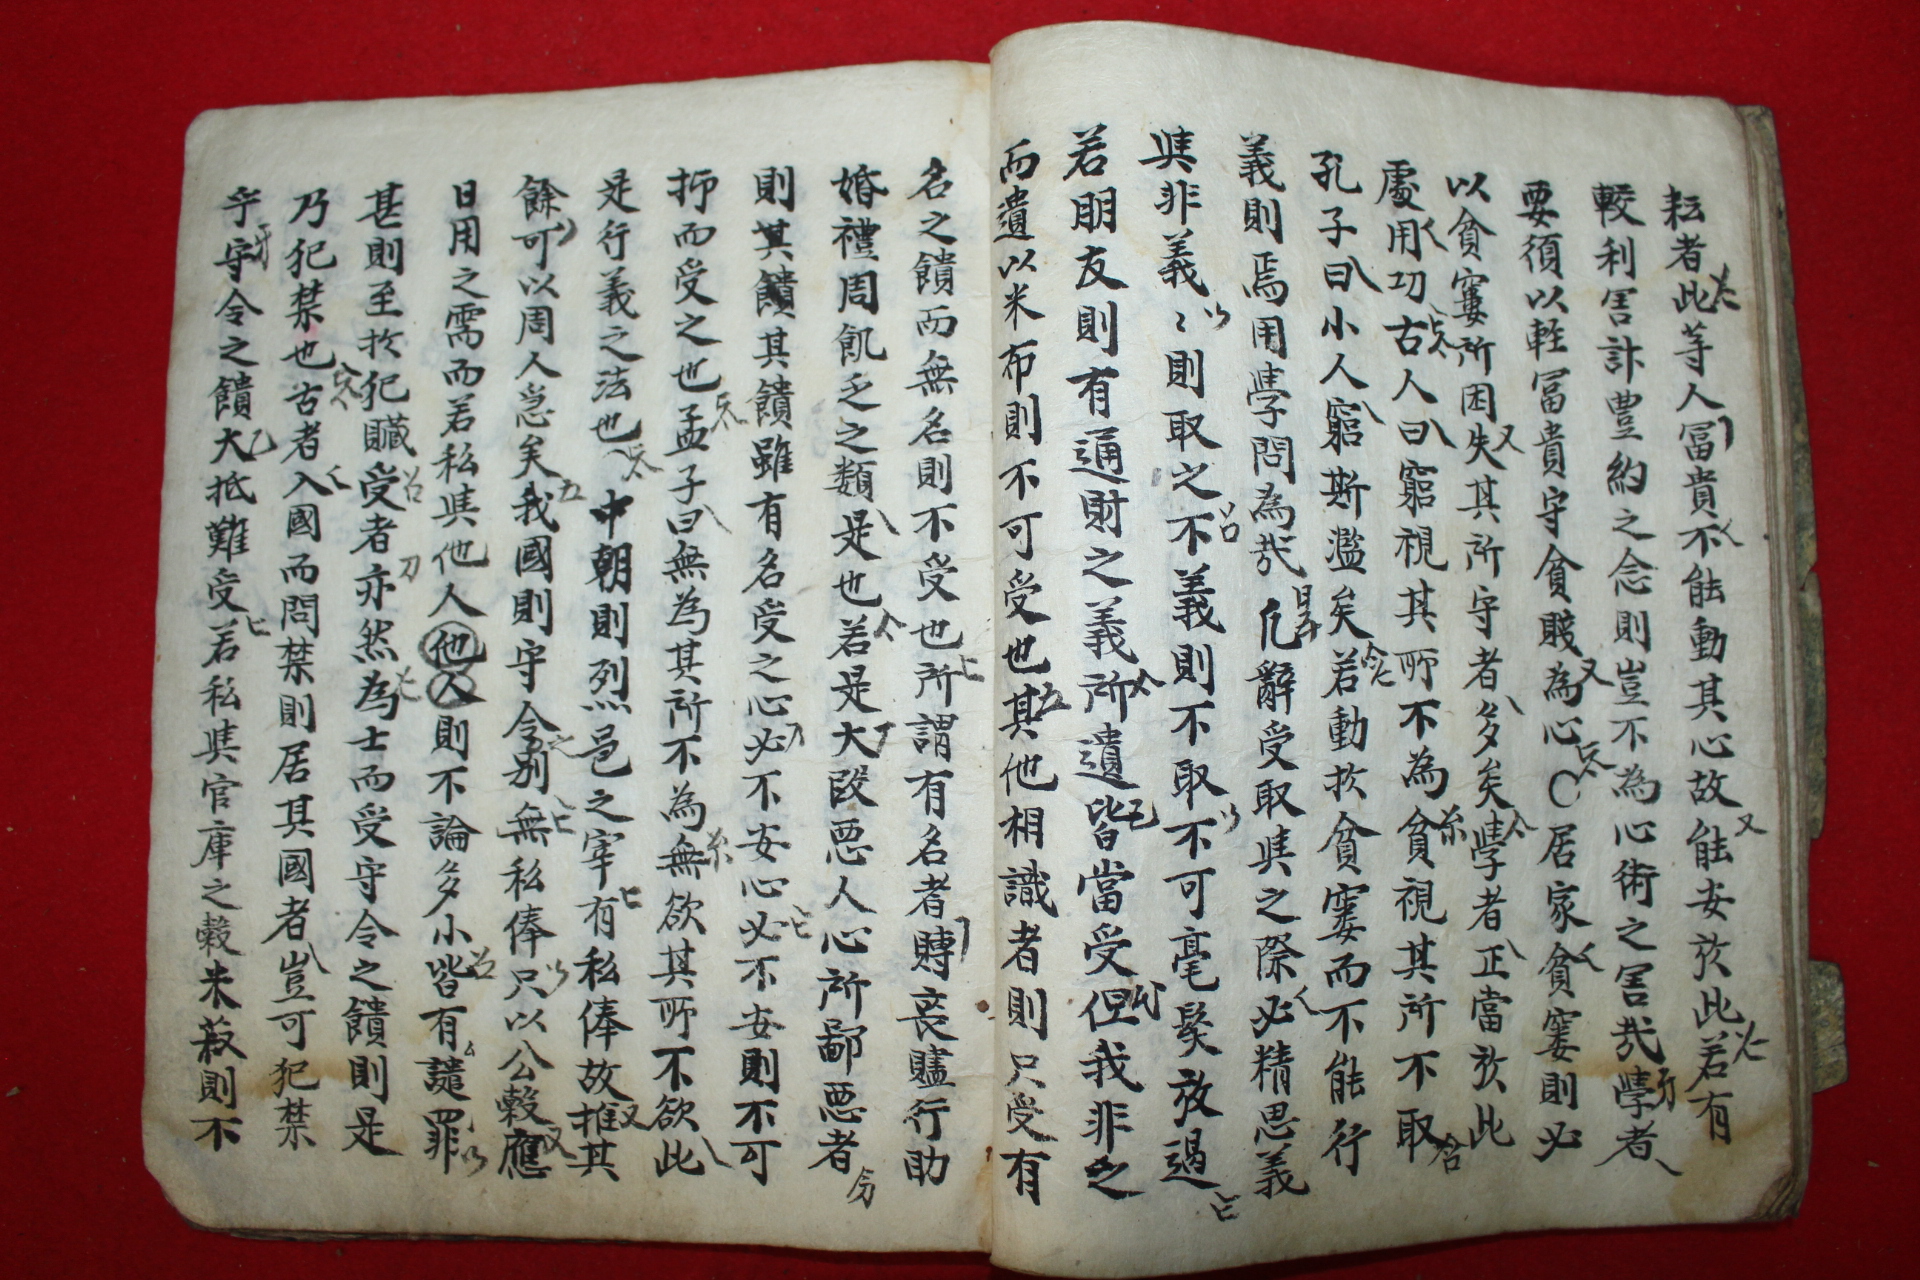 耘者此等人冨貴不能動其心故能安於此若有
較利害計豊約之念則豈不為心術之害哉學者
要須以輕冨貴守貧賤為心○居家貧窶則必
以貧窶所困失其所守者多矣學者正當於此
處用功古人曰窮視其所不為貧視其所不取
孔子曰小人窮斯濫矣若動於貧窶而不能行
義則焉用學問為哉凡辭受取與之際必精思義
與非義〻則取之不義則不取不可毫髮放過
若朋友則有通財之義所遺皆當受但我非乏
而遺以米布則不可受也其他相識者則只受有
名之饋而無名則不受也所謂有名者賻喪贐行助
婚禮周飢乏之類是也若是大段惡人心所鄙惡者
則其饋其饋雖有名受之心必不安心必不安則不可
抑而受之也孟子曰無為其所不為無欲其所不欲此
是行義之法也中朝則烈邑之宰有私俸故推其
餘可以周人急矣我國則守令別無私俸只以公穀應
日用之需而若私與他人他人則不論多小皆有譴罪
甚則至於犯贓受者亦然為士而受守令之饋則是
乃犯禁也古者入國而問禁則居其國者豈可犯禁
乎守令之饋大抵難受若私與官庫之穀米菽則不